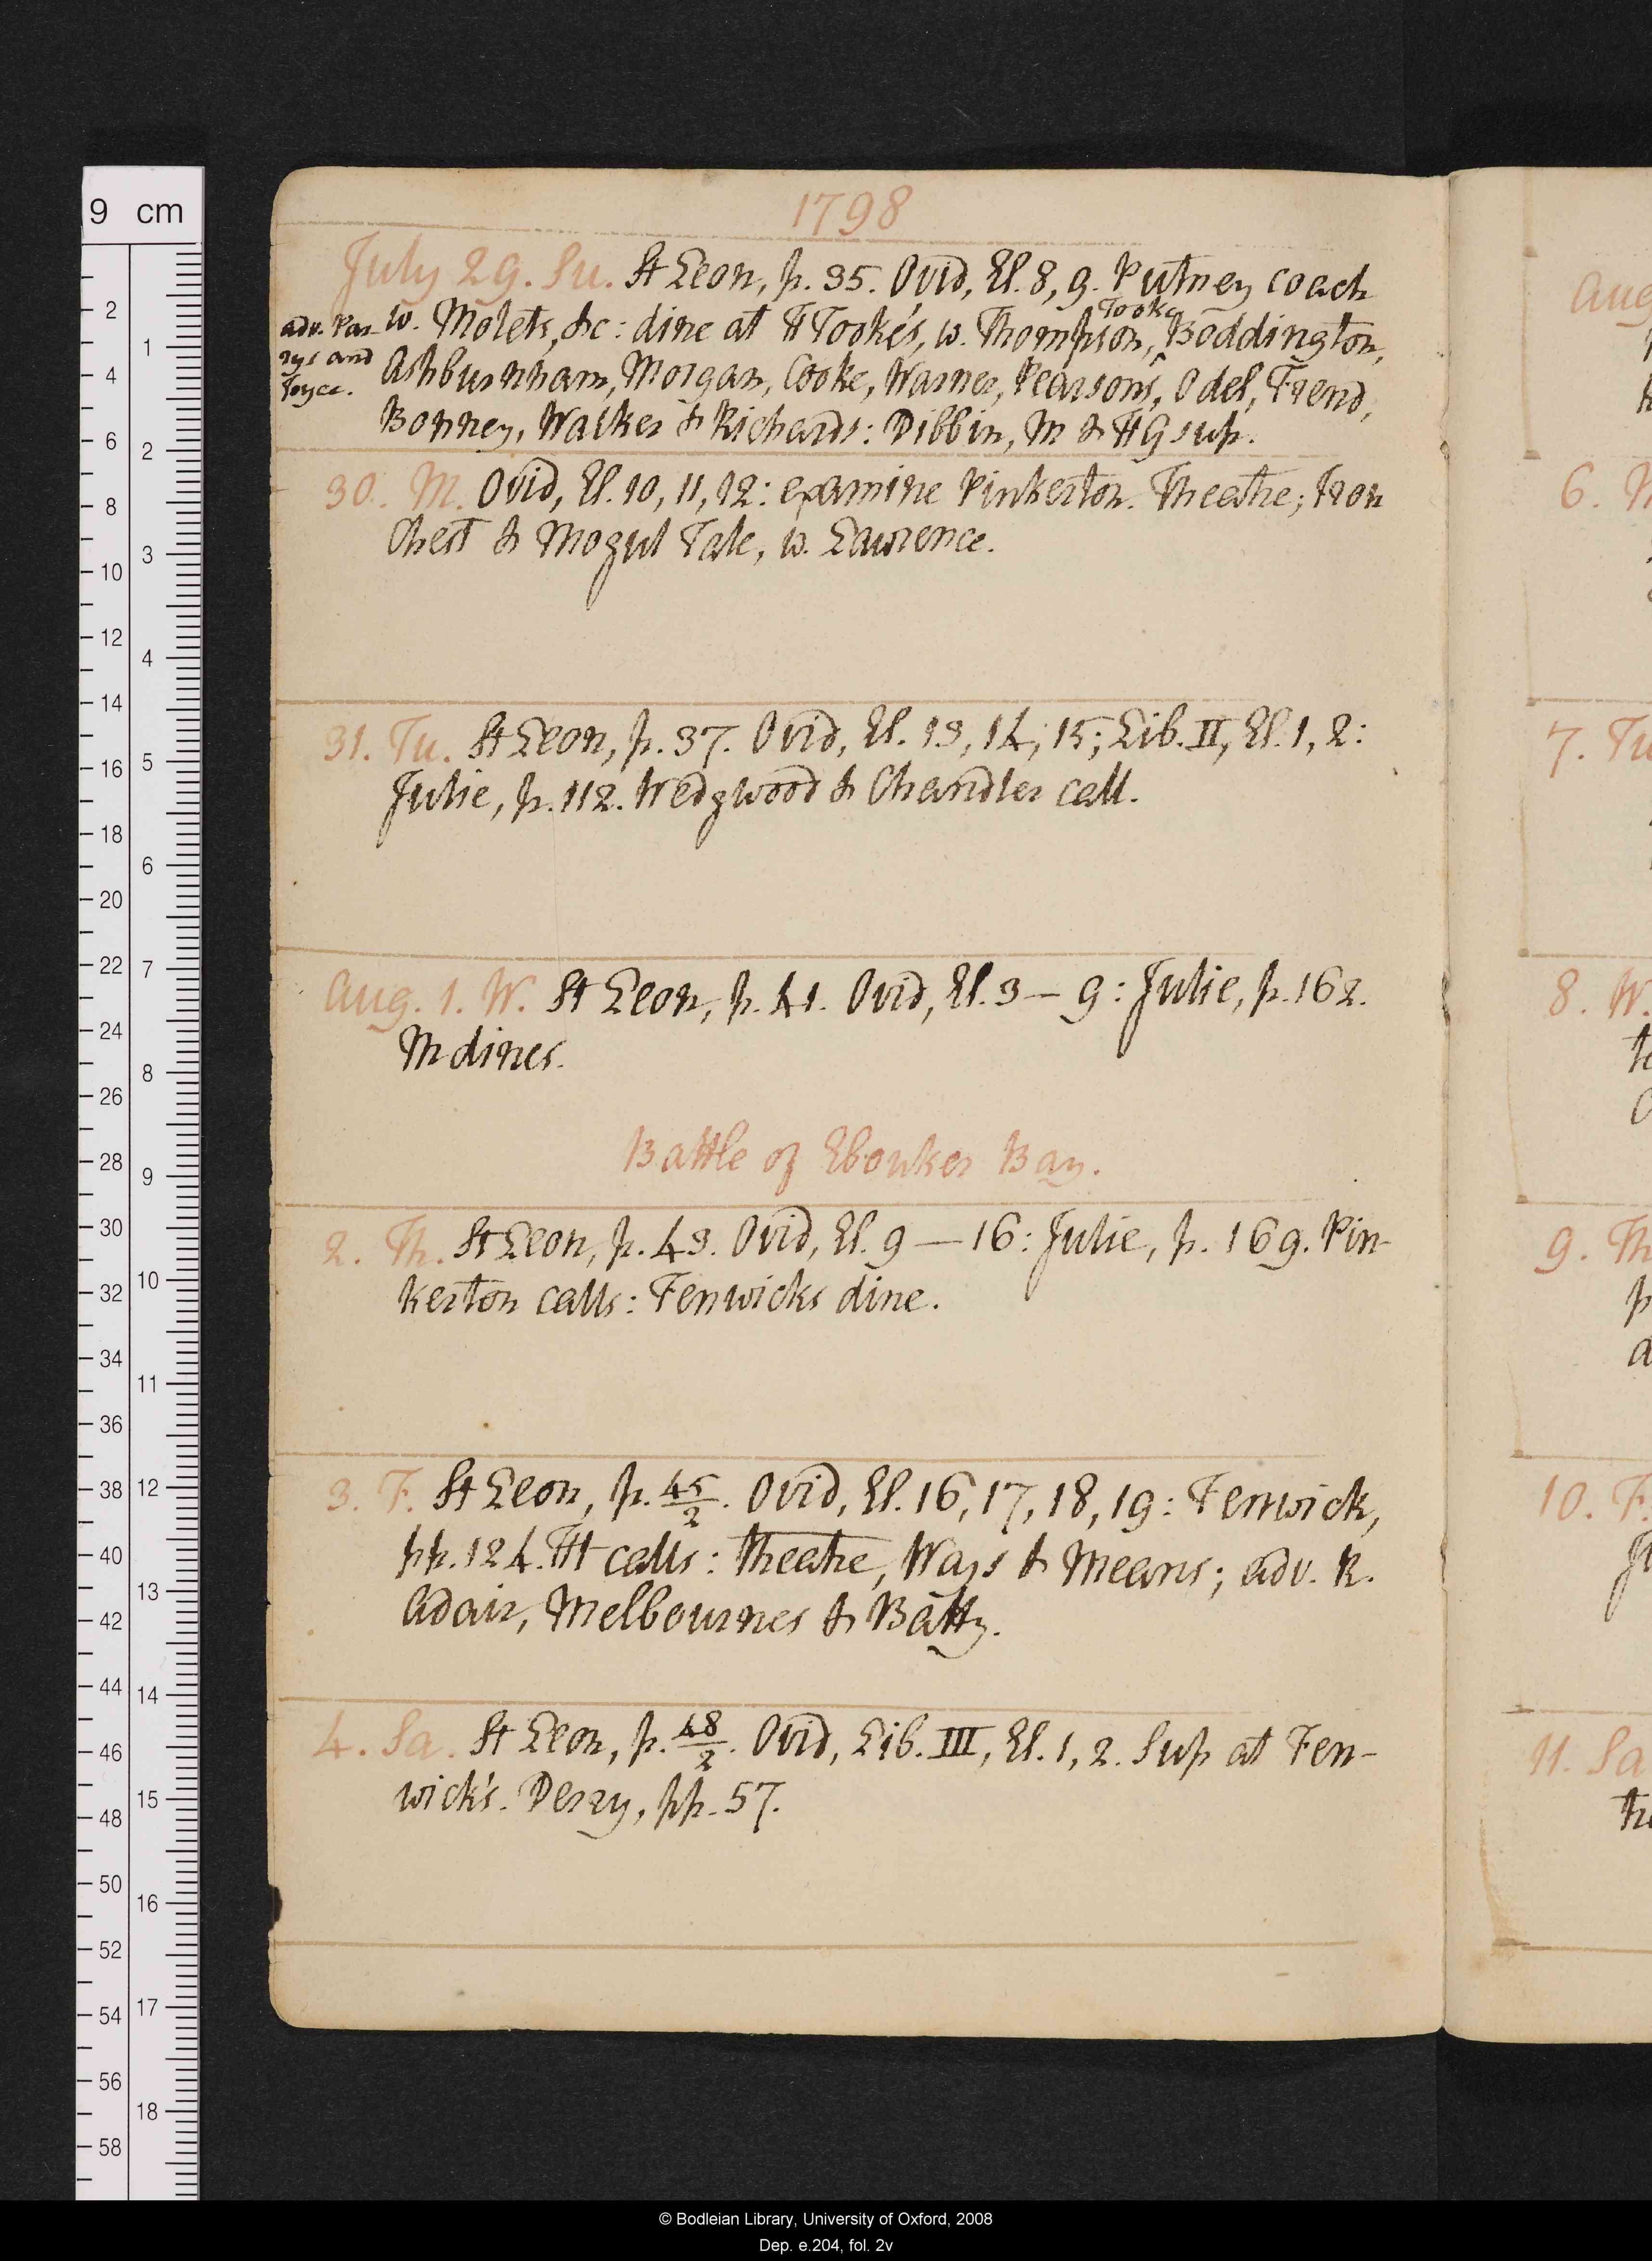 1798
July 29. Su. St Leon, p. 35. Ovid, El. 8, 9. Putney coach
w. Molets, &c: dine at H Tooke's, w. Thompson, Tooke, Boddington,
adv. Par-
rys and
Joyce.
Ashburnham, Morgan, Cooke, Warner, Pearsons, Odel, Frend,
Bonney, Walker & Richards: Dibbin, M & HG sup.
30. M. Ovid, El. 10, 11, 12: examine Pinkerton. Theatre; Iron
Chest & Mogul Tale, w. Lawrence.
31. Tu. St Leon, p. 37. Ovid, El. 13, 14, 15; Lib. II, El. 1, 2:
Julie, p. 112. Wedgwood & Chandler call.
Aug. 1. W. St Leon, p. 41. Ovid, El. 3 — 9: Julie, p. 162.
M dines.
Battle of Ebouker Bay.
2. Th. St Leon, p. 43. Ovid, El. 9 — 16: Julie, p. 169. Pin-
kerton calls: Fenwicks dine.
3. F. St Leon, p. 45/2. Ovid, El. 16, 17, 18, 19: Fenwick,
pp. 124. Ht calls: Theatre, Ways & Means; adv. R.
Adair, Melbournes & Batty.
4. Sa. St Leon, p. 48/2. Ovid, Lib. III, El. 1, 2. Sup at Fen-
wick's. Perry, pp. 57.
Aug
6. M
7. Tu
8. W.
9. Th
10. F.
11. Sa
9 cm
2 4 6 8 10 12 14 16 18 20 22 24 26 28 30 32 34 36 38 40 42 44 46 48 50 52 54 56 58
1 2 3 4 5 6 7 8 9 10 11 12 13 14 15 16 17 18
© Bodleian Library, University of Oxford, 2008
Dep. e.204, fol. 2v